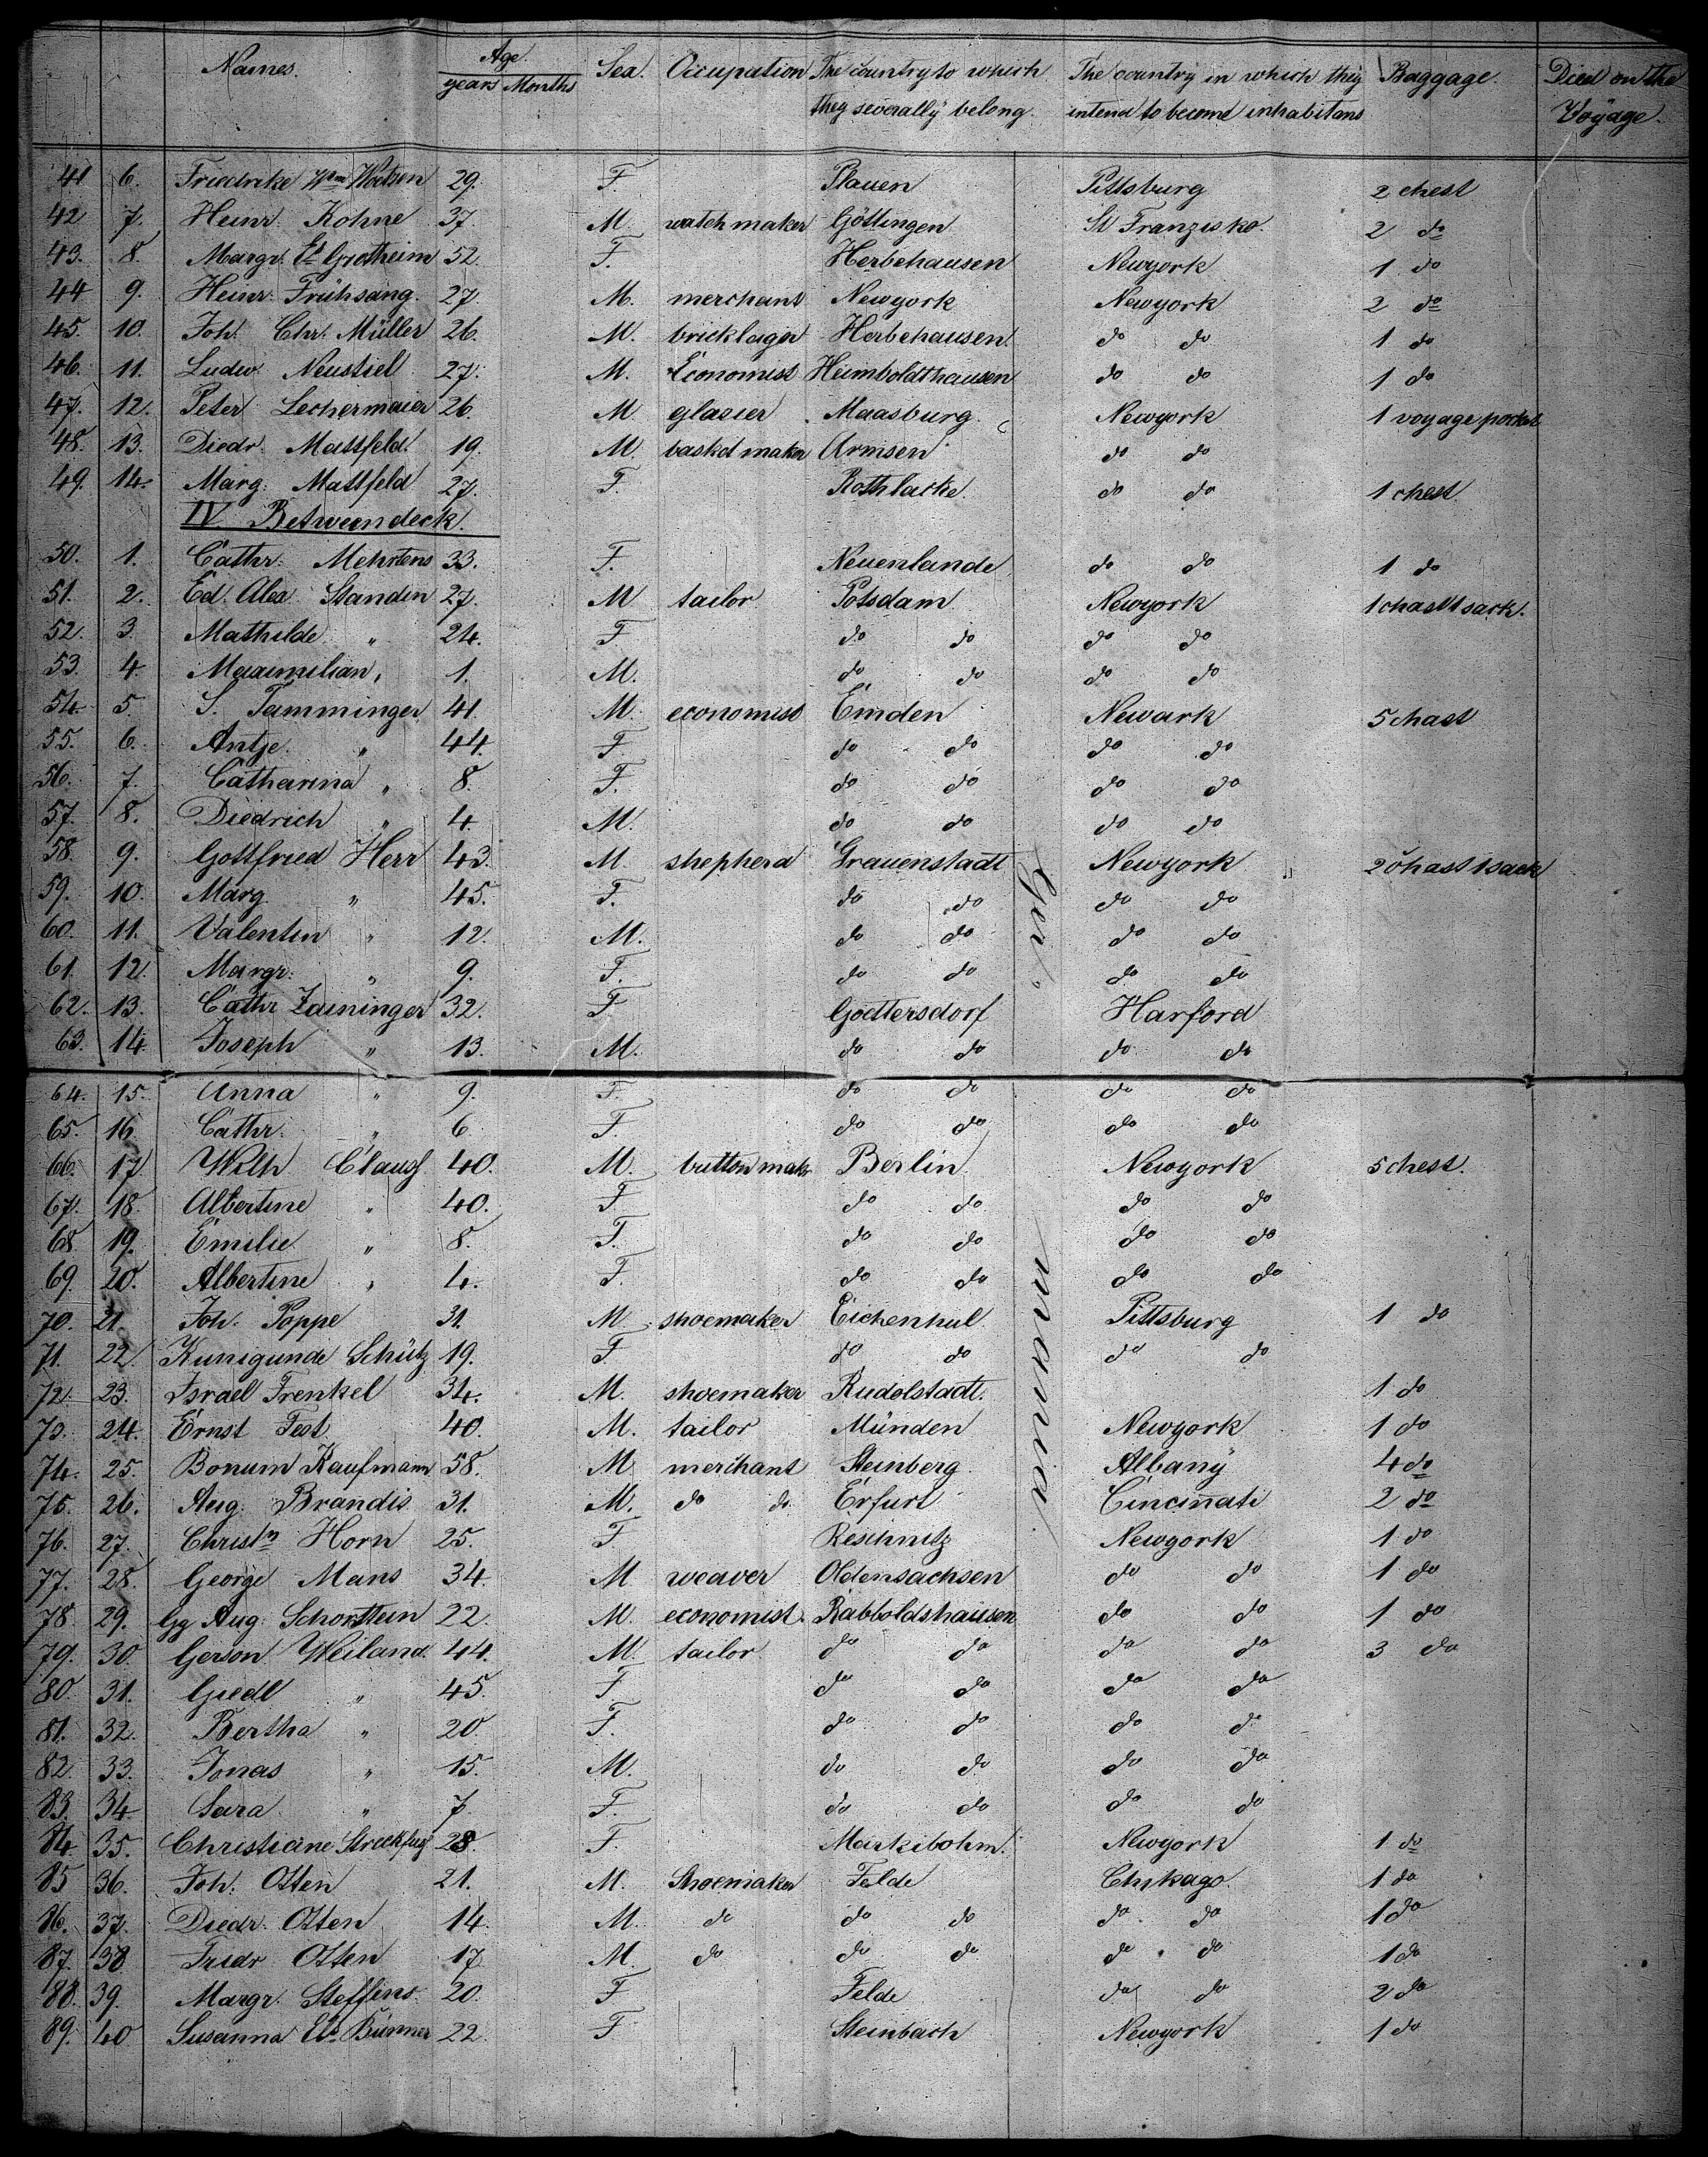 Names. Age. Sex. Occupation The country to which The country in which they Baggage. Died on the
years Months they severally belong. intend to become inhabitans Voÿage.
41 6. Friedrike Wwe 29. F. Plauen Pittsburg 2 chest
42 7. Heinr. Kohne 37. M. watch maker Göttingen St Franzisko. 2 do
43. 8. Margr. El. Grotheim 52. F. Herbehausen Newyork 1 do
44 9. Heinr. Frühsang. 27. M. merchant Newyork Newyork 2 do
45. 10. Joh. Chr. Müller 26. M. bricklager Herbehausen. do do 1 do
46. 11. Ludw. Neustiel 27. M. Economist Heimboldthausen do do 1 do
47. 12. Peter Lechermaier 26. M glasier Maasburg. Newyork 1 voyage pocket
48. 13. Diedr. Mattfeld. 19. M. basket maker Armsen do do
49. 14. Marg. Mattfeld 27. F. Rothlacke. do do 1 chest
IV. Betweendeck.
50. 1. Cathr. Mehrtens 33. F. Neuenlande do do 1 do
51. 2. Ed. Alex. Standin 27. M tailor Potsdam Newyork 1 chast 1 sack.
52. 3. Mathilde " 24. F do do do do
53. 4. Maximilian " 1. M. do do do do
54. 5. S. Tamminger 41. M. economist Emden Newark 5 chast
55. 6. Antje " 44. F. do do do do
56. 7. Catharina " 8. F. do do do do
57. 8. Diedrich " 4. M. do do do do
58. 9. Gottfried Herr 43. M shepherd Grauenstadt Newyork 2 chast 1 sack
59. 10. Marg " 45. F. do do do do
60. 11. Valentin " 12. M. do do do do
61. 12. Margr. " 9. F. do do do do
62. 13. Cathr Zaininger 32. F Goettersdorf Harford
63. 14. Joseph " 13. M. do do do do
64. 15. Anna " 9. F. do do do do
65. 16 Cathr. " 6. F. do do do do
66. 17. Wilh Clauss 40. M. button mak. Berlin. Newyork 5 chest.
67. 18. Albertine " 40. F do do do do
68 19. Emilie " 8. F. do do do do
69. 20. Albertine " 4. F. do do do do
70. 21. Joh. Poppe 31. M. shoemaker Eichenhul Pittsburg 1 do
71. 22. Kunigunde Schütz 19. F. do do do do
72. 23. Israel Frenkel 34. M. shoemaker Rudolstadt. 1 do
73. 24. Ernst Fest 40. M. tailor Münden Newyork 1 do
74. 25. Bonum Kaufmann 58. M merchant Steinberg Albanÿ 4 do
75. 26. Aug. Brandis 31. M. do do Erfurt Cincinnati 2 do
76. 27. Christn Horn 25. F Reschnitz Newyork 1 do
77. 28. George Mans 34. M weaver Oldensachsen do do 1 do
78. 29. Gg Aug. Schorstein 22. M. economist. Rabboldshausen do do 1 do
79. 30. Gerson Weiland. 44. M. tailor. do do do do 3 do
80. 31. Giedl " 45. F. do do do do
81. 32. Bertha " 20. F. do do do do
82. 33. Jonas " 15. M. do do do do
83. 34. Sara " 7. F. do do do do
84. 35. Christiane Streckfuss 28. F. Markibohm. Newyork 1 do
85 36. Joh. Otten 21. M. Shoemaker Felde Chikago. 1 do
86. 37. Diedr. Otten 14. M. do do do do do 1 do
87. 38 Friedr Otten 17 M. do do do do do 1 do
88. 39. Margr. Steffens. 20. F Felde do do 2 do
89. 40 Susanna Els. Bünner 22 F Steinbach Newyork 1 do
Germania.